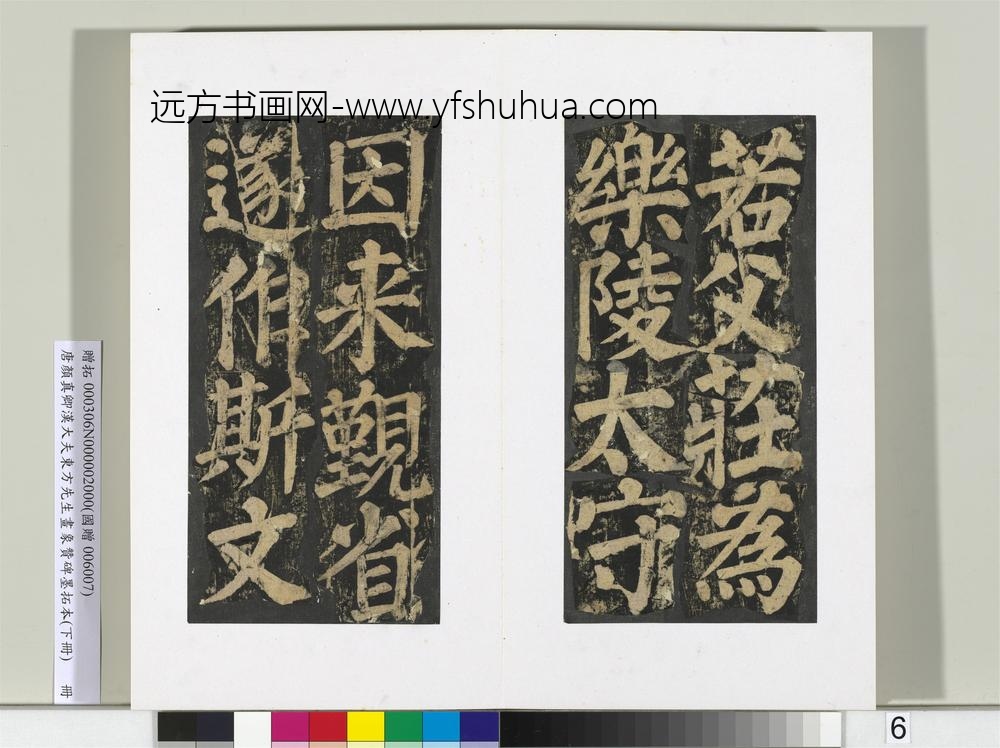 远方书画网-www.yfshuhua.com
若父莊為
樂陵太守
因来覲省
遂作斯文
贈拓 000306N000002000(國贈 006007)
唐顏真卿漢大夫東方先生畫象贊碑墨拓本(下冊) 冊
6